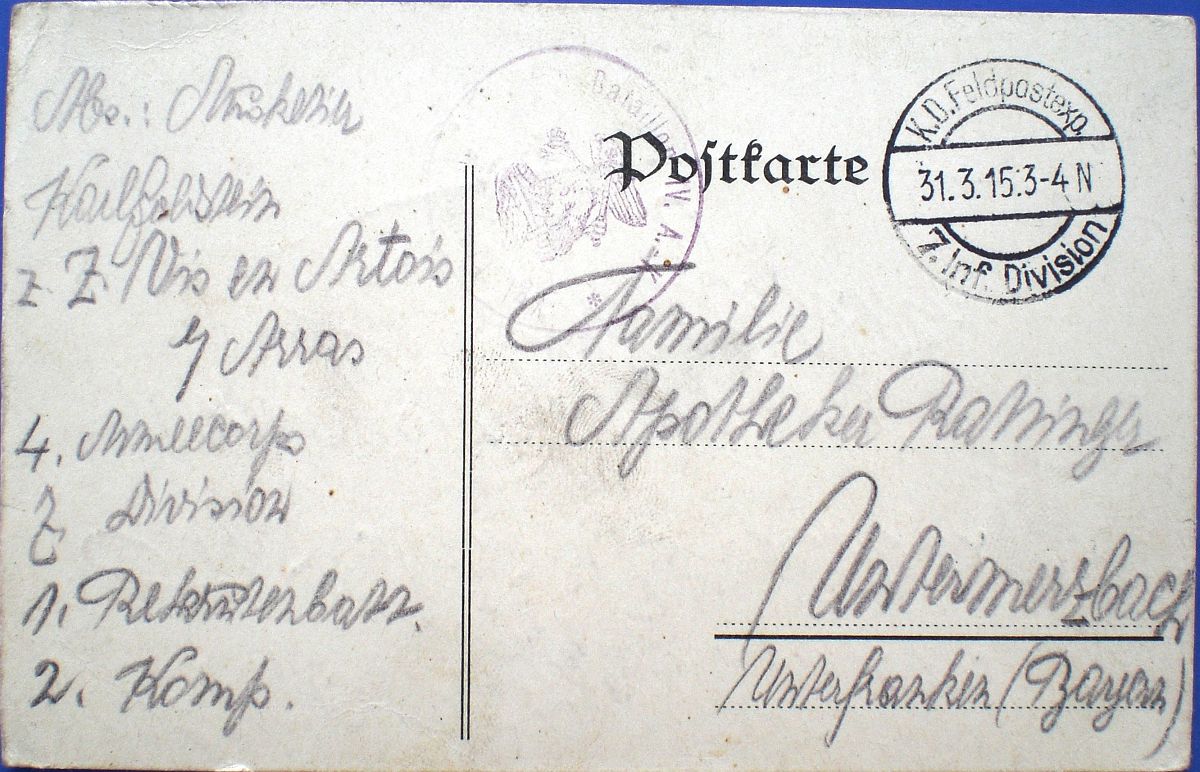 Abs.: Musketier
Karl
z Z Vis en Artois
b/ Arras
4. Armeecorps
7 Division
1. Rekrutenbatt.
2. Komp.
Bataillon IV. A.
Poſtkarte
K.D. Feldpostexp.
31.3.15.3-4 N
7. Inf. Division
Familie
Apotheker Rattinger
Untermerzbach
Unterfranken (Bayern)